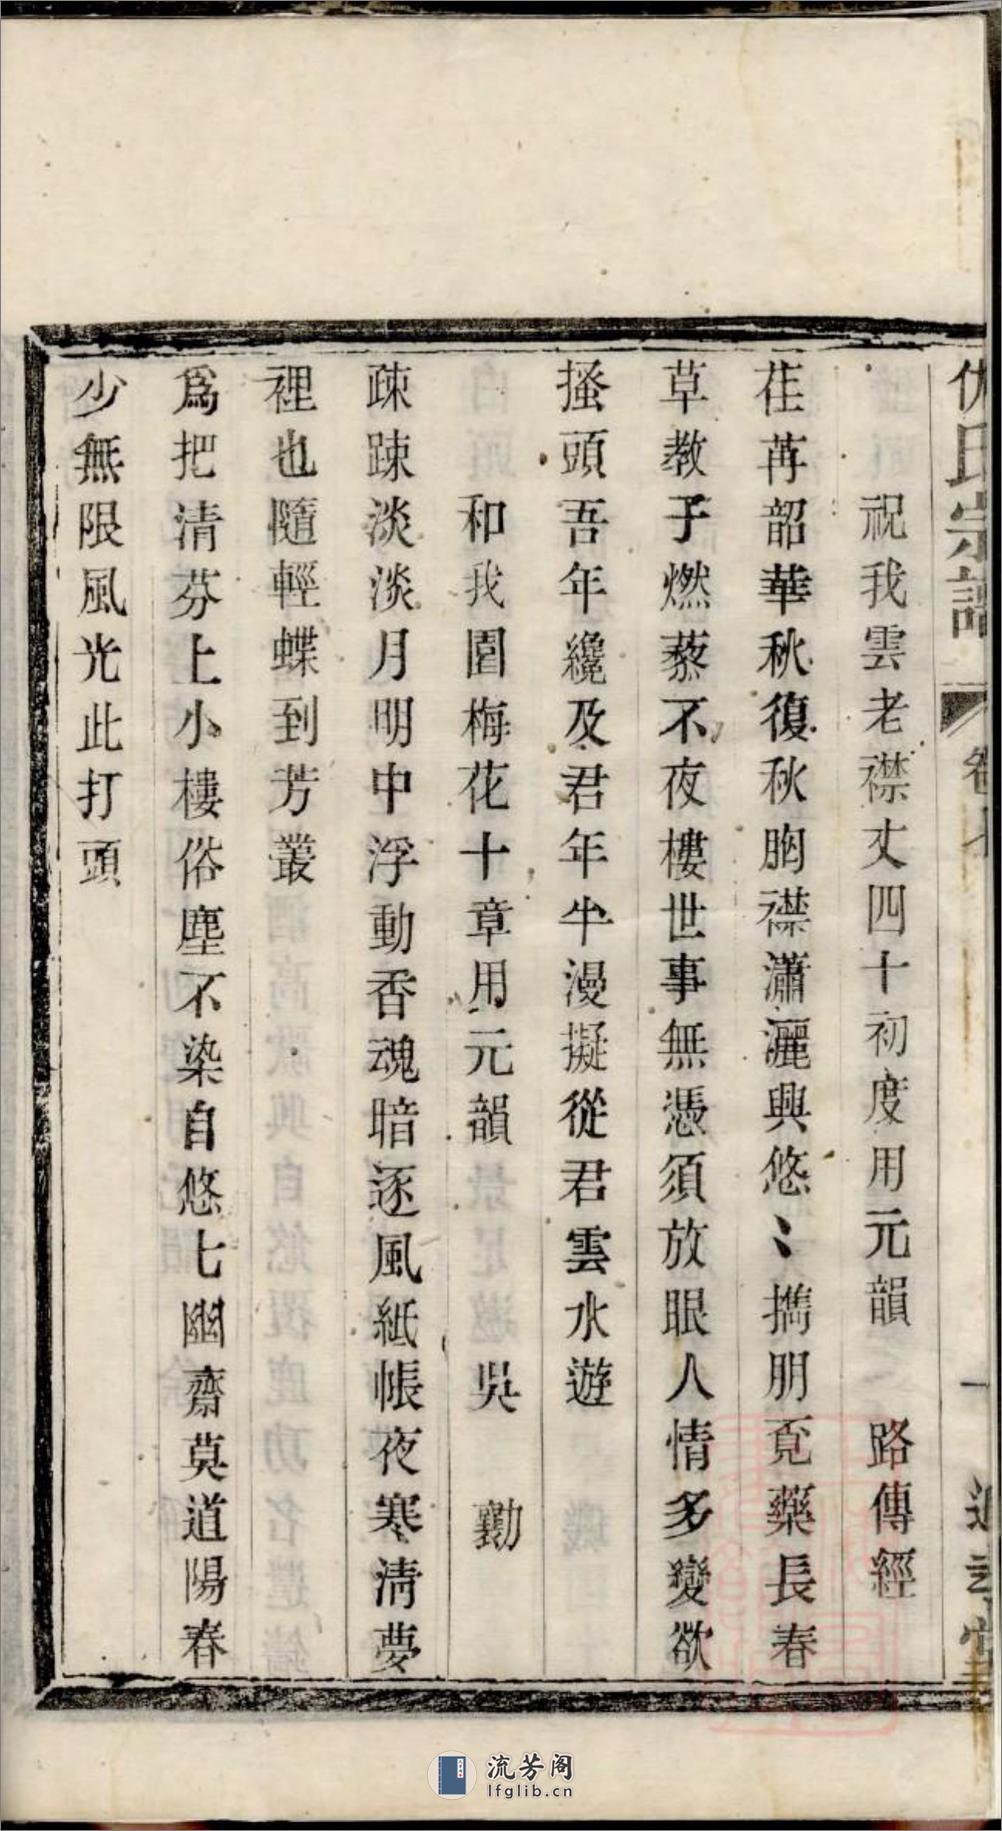 氏宗譜 卷
祝我雲老襟丈四十初度用元韻 路傳經
荏苒韶華秋復秋胸襟瀟灑興悠〻擕朋覓藥長春
草教子燃藜不夜樓世事無憑須放眼人情多變欲
搔頭吾年纔及君年半漫擬從君雲水遊
和我園梅花十章用元韻 吳 勷
疎踈淡淡月明中浮動香魂暗逐風紙帳夜寒清夢
裡也隨輕蝶到芳叢
爲把清芬上小樓俗塵不染自悠七幽齋莫道陽春
少無限風光此打頭
流芳阁
lfglib.cn